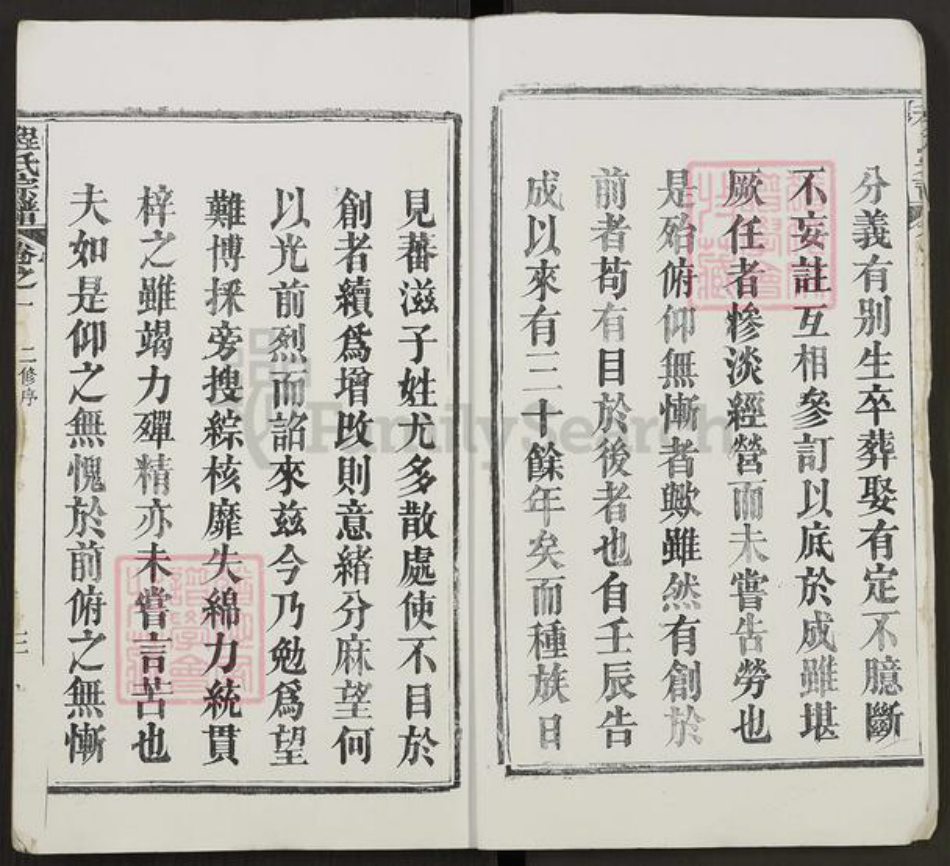 分義有別生卒葬娶有定不臆斷
不妄註互相參訂以底於成雖堪
厥任者慘淡經營而未嘗告勞也
是殆俯仰無慚者歟雖然有創於
前者苟有目於後者也自壬辰告
成以來有三十餘年矣而種族日
見蕃滋子姓尤多散處使不目於
創者續爲增改則意緒分麻望何
以光前烈而詔來兹今乃勉爲望
難博採旁搜綜核靡失綿力統貫
梓之雖竭力殫精亦未嘗言苦也
夫如是仰之無愧於前俯之無慚
程氏宗譜 卷之一 二修序
FamilySearch